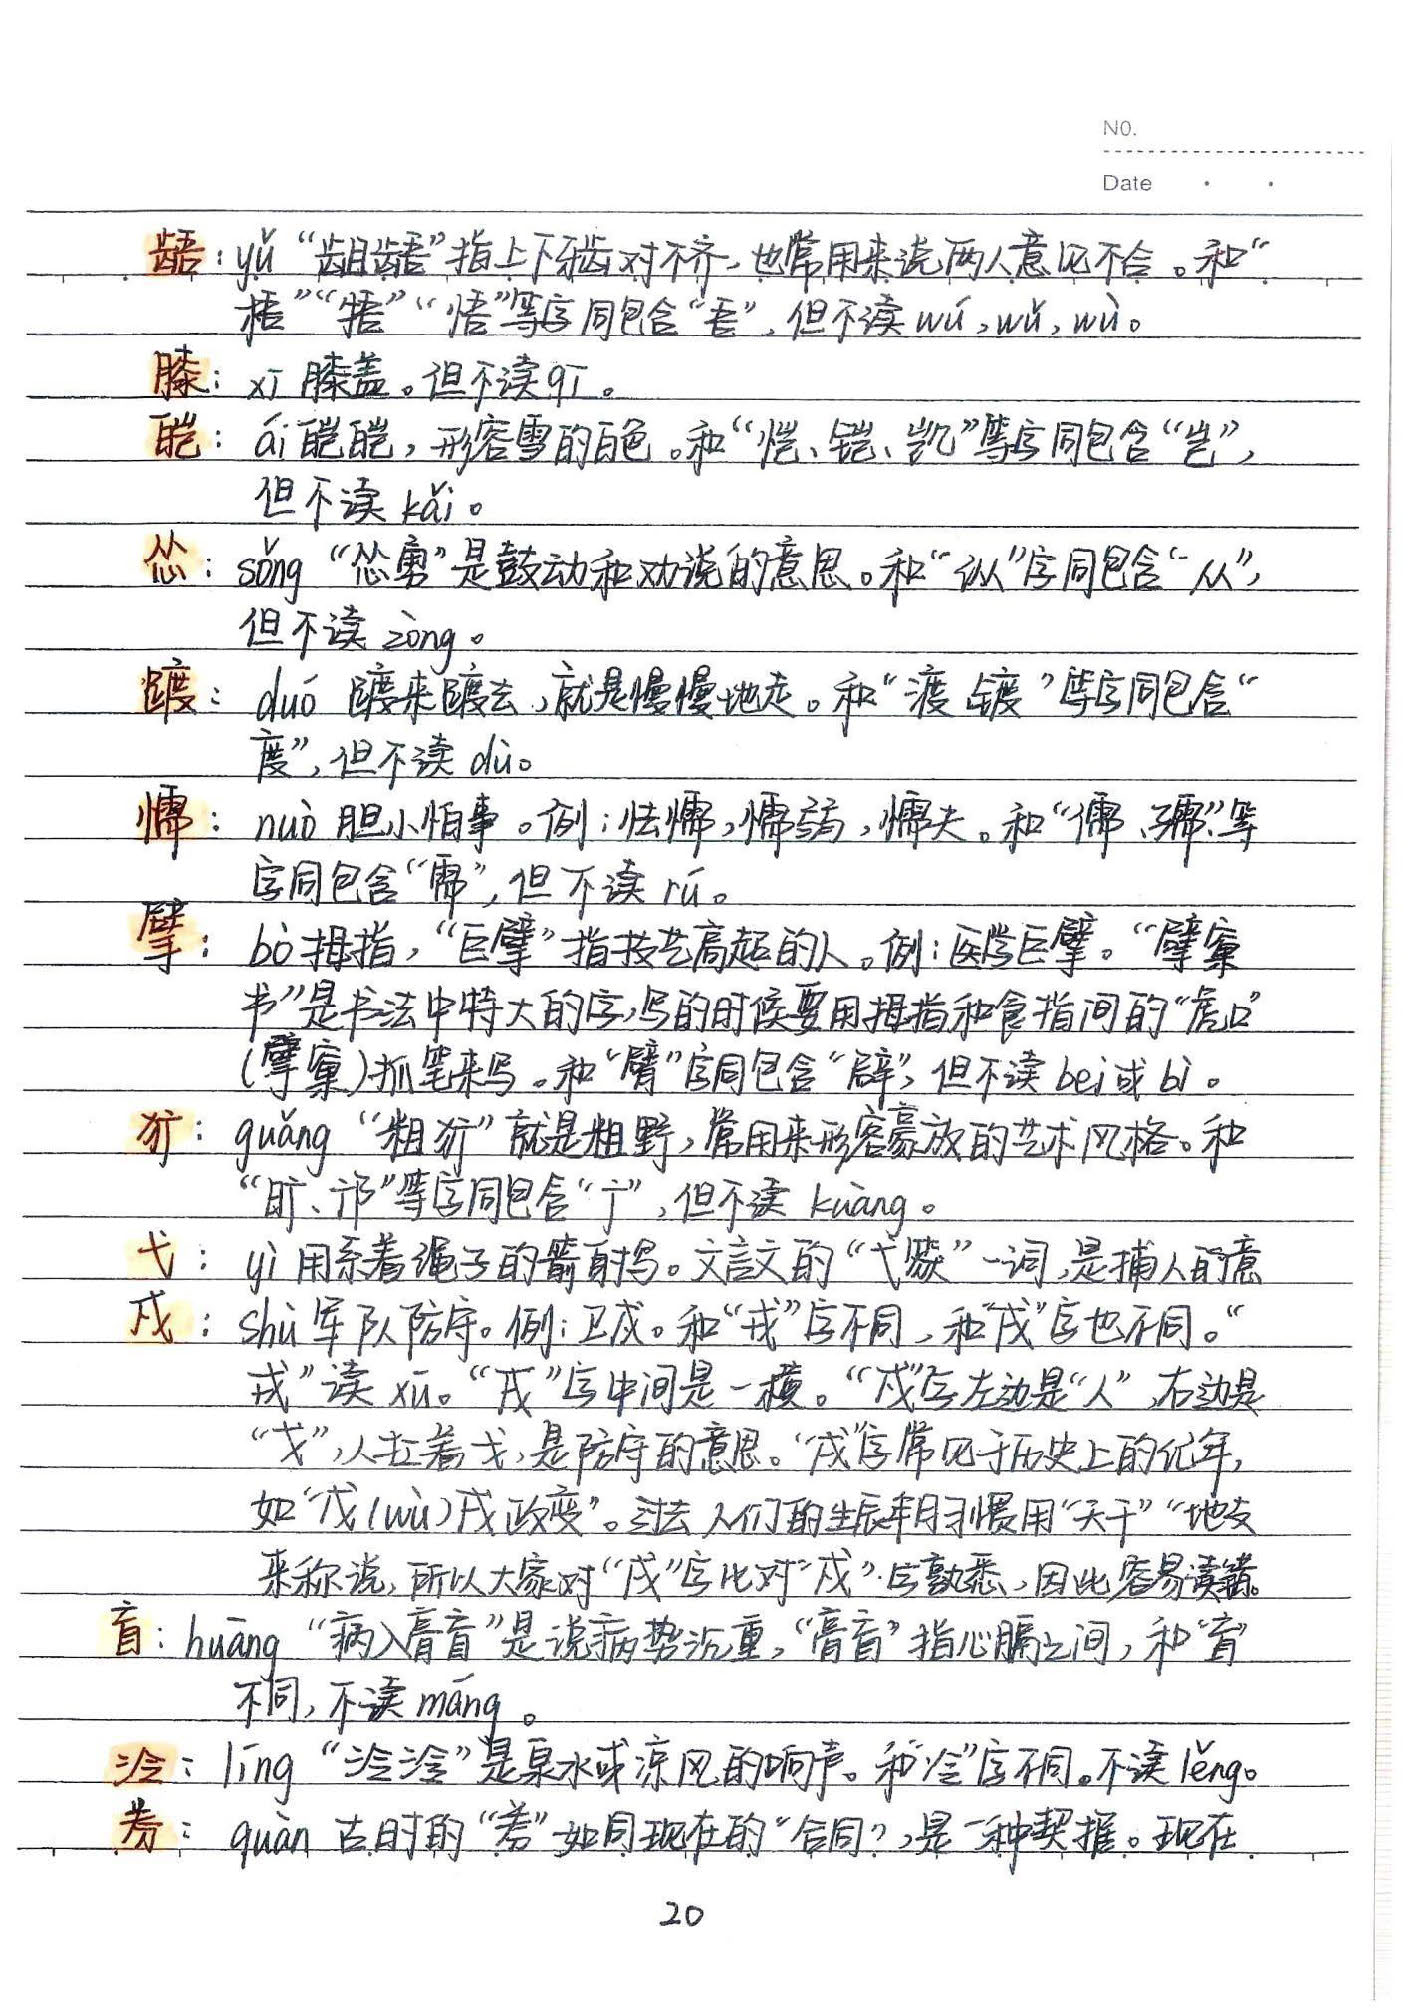 NO.
Date
龉：yǔ “龃龉”指上下牙齿对不齐，也常用来说两人意见不合。和“
梧”“牾”“悟”等字同包含“吾”，但不读wú，wǔ，wù。
膝：xī 膝盖。但不读qī。
皑：ái 皑皑，形容雪的白色。和“恺、铠、凯”等字同包含“岂”，
但不读kǎi。
怂：sǒng “怂恿”是鼓动和劝说的意思。和“纵”字同包含“从”，
但不读zòng。
踱：duó 踱来踱去，就是慢慢地走。和“渡 镀”等字同包含“
度”，但不读dù。
懦：nuò 胆小怕事。例：怯懦，懦弱，懦夫。和“儒、孺”等
字同包含“需”，但不读rú。
擘：bò 拇指，“巨擘”指技艺高超的人。例：医学巨擘。“擘窠
书”是书法中特大的字，写的时候要用拇指和食指间的“虎口”
（擘窠）抓笔来写。和“臂”字同包含“辟”，但不读bei或bì。
犷：guǎng “粗犷”就是粗野，常用来形容豪放的艺术风格。和
“旷、邝”等字同包含“广”，但不读kuàng。
弋：yì 用系着绳子的箭射鸟。文言文的“弋猴”一词，是捕人的意
戍：shù 军队防守。例：卫戍。和“戎”字不同，和“戌”字也不同。“
戌”读xū。“戌”字中间是一横。“戍”字左边是“人”，右边是
“戈”，人拉着戈，是防守的意思。“戌”字常见于历史上的纪年，
如“戊（wù）戌政变”。过去人们的生辰年月习惯用“天干”“地支
来称说，所以大家对“戌”字比对“戍”字熟悉，因此容易读错。
肓：huāng “病入膏肓”是说病势沉重，“膏肓”指心膈之间，和“盲”
不同，不读máng。
泠：líng “泠泠”是泉水或凉风的响声。和“冷”字不同。不读lěng。
券：quàn 古时的“券”如同现在的“合同”，是一种契据。现在
20